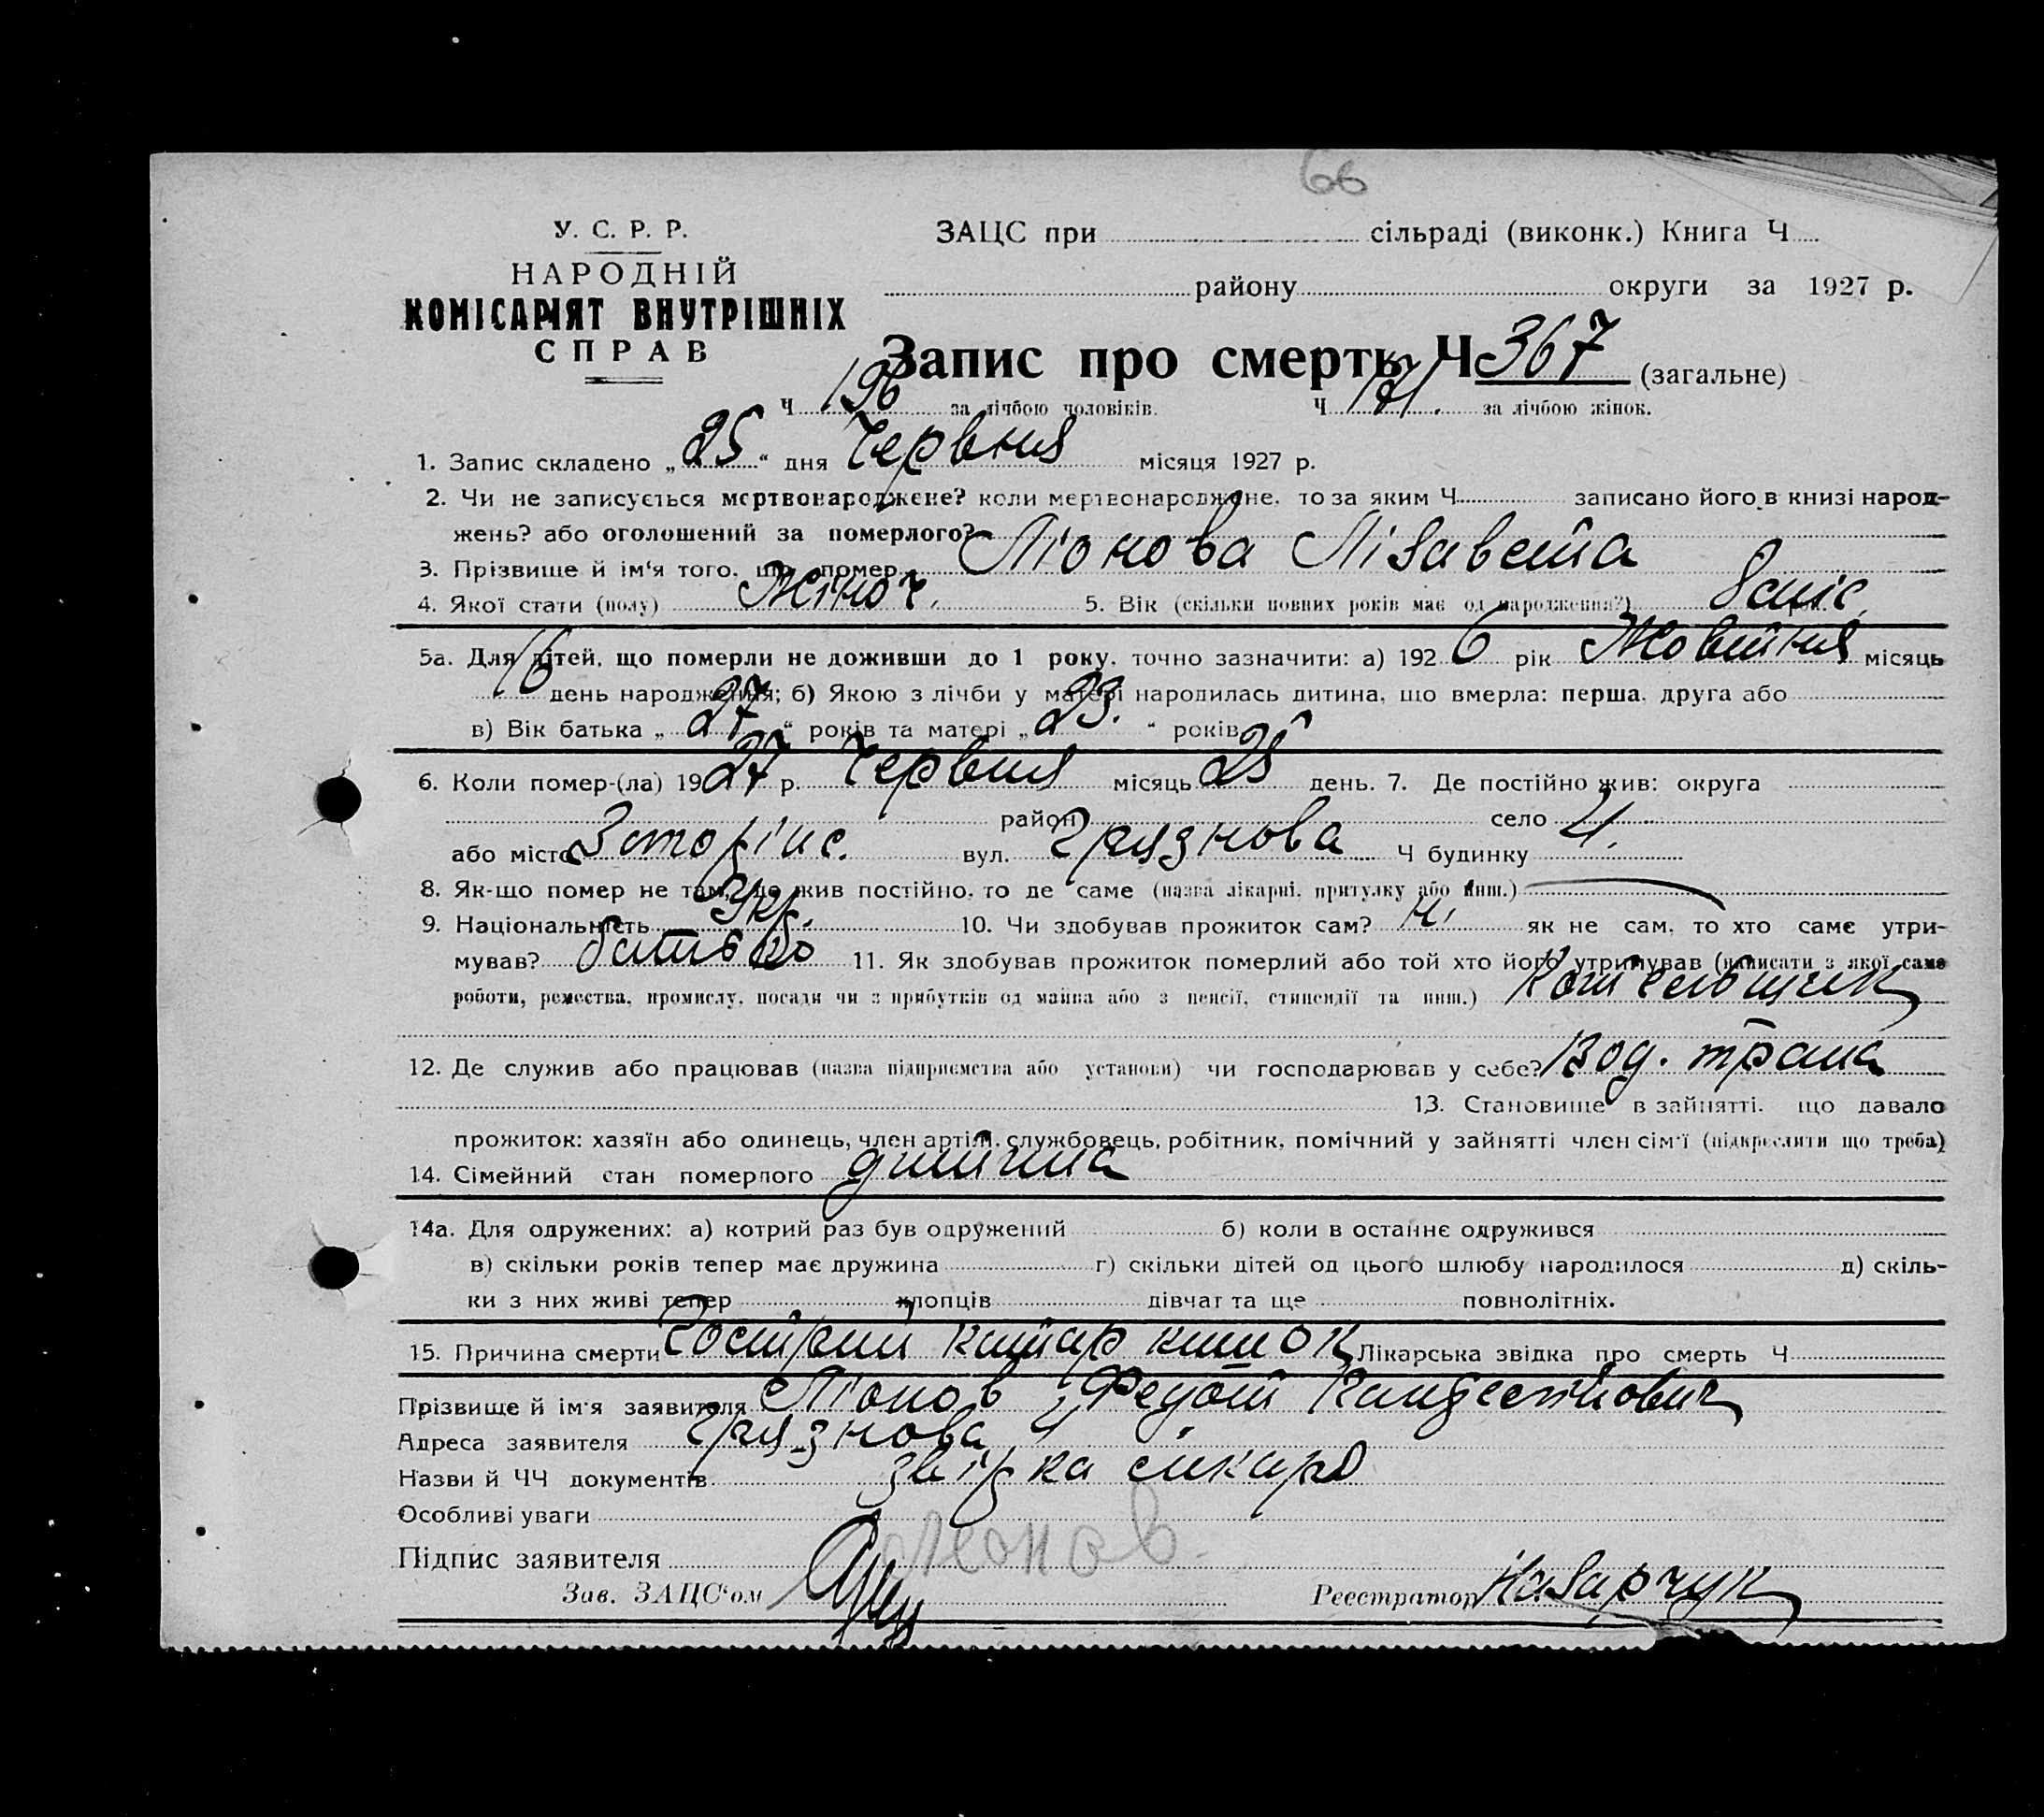 66
У. С. Р. Р.
НАРОДНІЙ
КОМІСАРІЯТ ВНУТРІШНІХ
СПРАВ
ЗАЦС при сільраді (виконк.) Книга Ч
району округи за 1927 р.
Запис про смерть Ч 367 (загальне)
Ч 196 за лічбою чоловіків. Ч 171. за лічбою жінок.
1. Запис складено „25“ дня Червня місяця 1927 р.
2. Чи не записується мертвонароджене? коли мертвонароджене, то за яким Ч записано його в книзі народ-
жень? або оголошений за померлого?
3. Прізвище й ім'я того, що помер Ліонова Лізавета
4. Якої стати (полу) Жіноч. 5. Вік (скільки повних років має од народження?) 8 міс.
5а. Для дітей, що померли не доживши до 1 року, точно зазначити: а) 1926 рік Жовтня місяць
16 день народження; б) Якою з лічби у матері народилась дитина, що вмерла: перша, друга або
в) Вік батька „27“ років та матері „23.“ років
6. Коли помер-(ла) 1927 р. Червня місяць 25 день. 7. Де постійно жив: округа
район село
або місто вул. Грязнова Ч будинку 4.
8. Як-що помер не там, де жив постійно, то де саме (назва лікарні, притулку або инш.)
9. Національність Укр. 10. Чи здобував прожиток сам? н. як не сам, то хто саме утри-
мував? батько 11. Як здобував прожиток померлий або той хто його утримував (написати з якої саме
роботи, ремества, промислу, посади чи з прибутків од майна або з пенсії, стипендії та инш.) Котельщик
12. Де служив або працював (назва підприємства або установи) чи господарював у себе? Вод. трана
13. Становище в зайнятті, що давало
прожиток: хазяїн або одинець, член артілі, службовець, робітник, помічний у зайнятті член сім'ї (підкреслити що треба)
14. Сімейний стан померлого дитина
14а. Для одружених: а) котрий раз був одружений б) коли в останнє одружився
в) скільки років тепер має дружина г) скільки дітей од цього шлюбу народилося д) скіль-
ки з них живі тепер хлопців дівчат та ще повнолітніх.
15. Причина смерти Гострий катар кишок Лікарська звідка про смерть Ч
Прізвище й ім'я заявителя Ліонов Федот
Адреса заявителя Грязнова 4
Назви й ЧЧ документів звідка лікаря
Особливі уваги
Підпис заявителя Леонов.
Зав. ЗАЦС'ом Реєстратор Назарчук